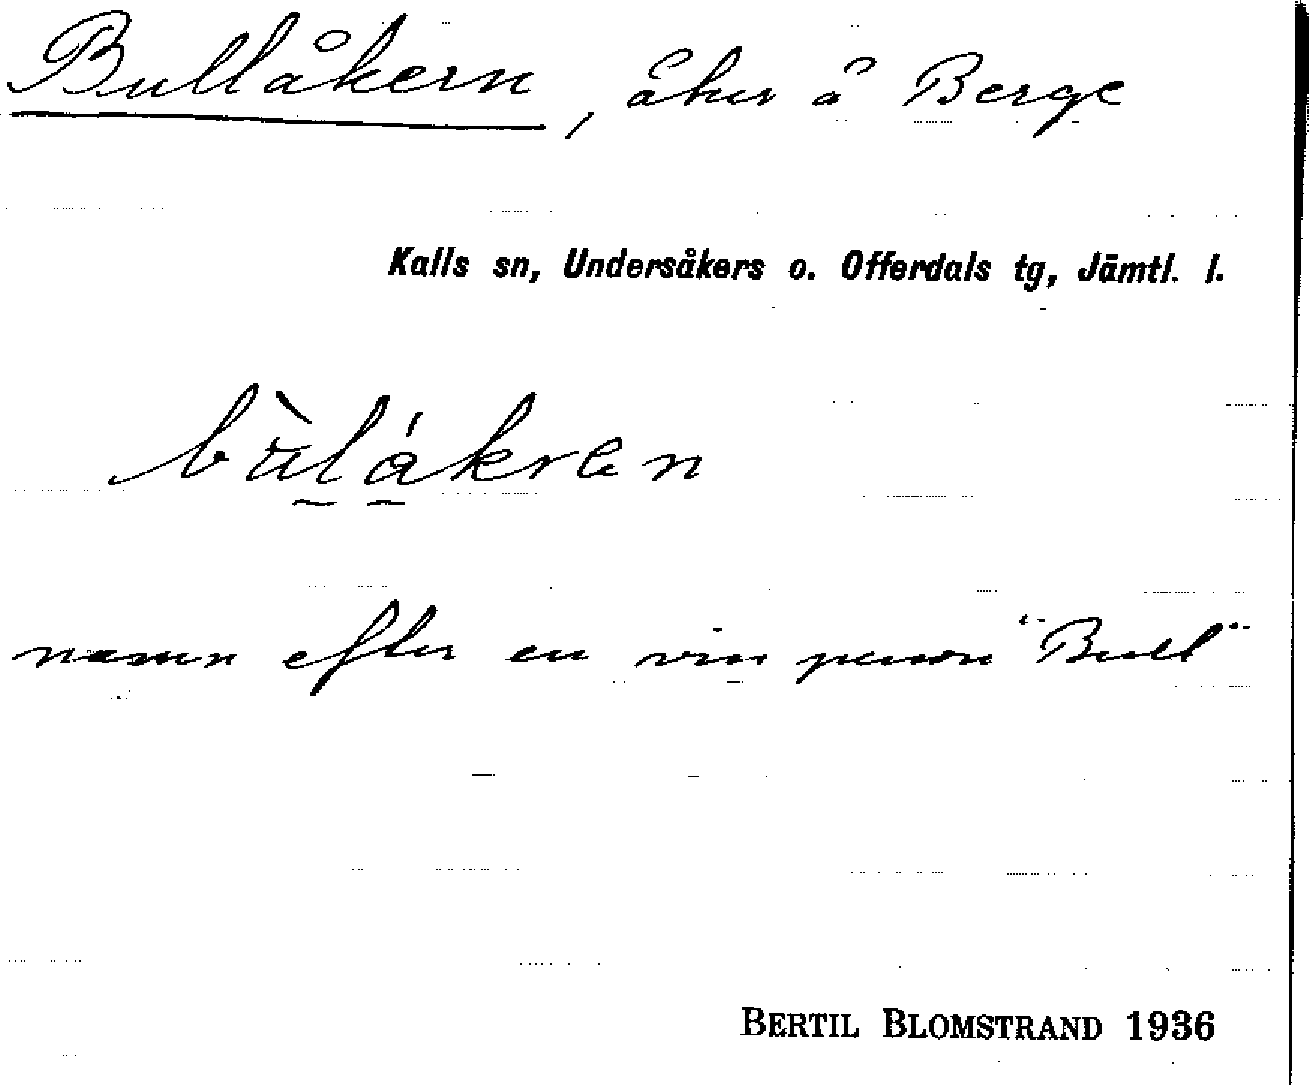 Bullåkern, åker å Berge
Kalls sn, Undersåkers o. Offerdals tg, Jämtl. l.
bùlákren
namn efter en viss person "Bull"
BERTIL BLOMSTRAND 1936